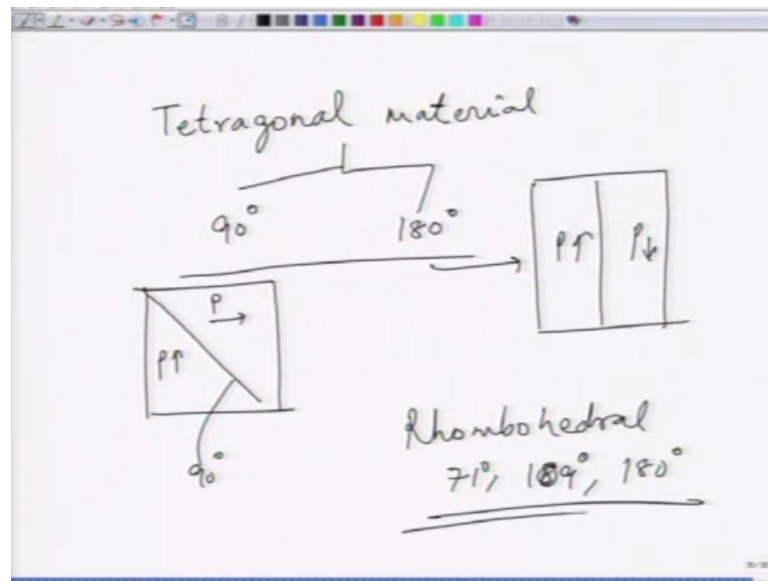 Tetragonal material
90° 180°
P↑ P↓
P→
P↑
90°
Rhombohedral
71°, 109°, 180°